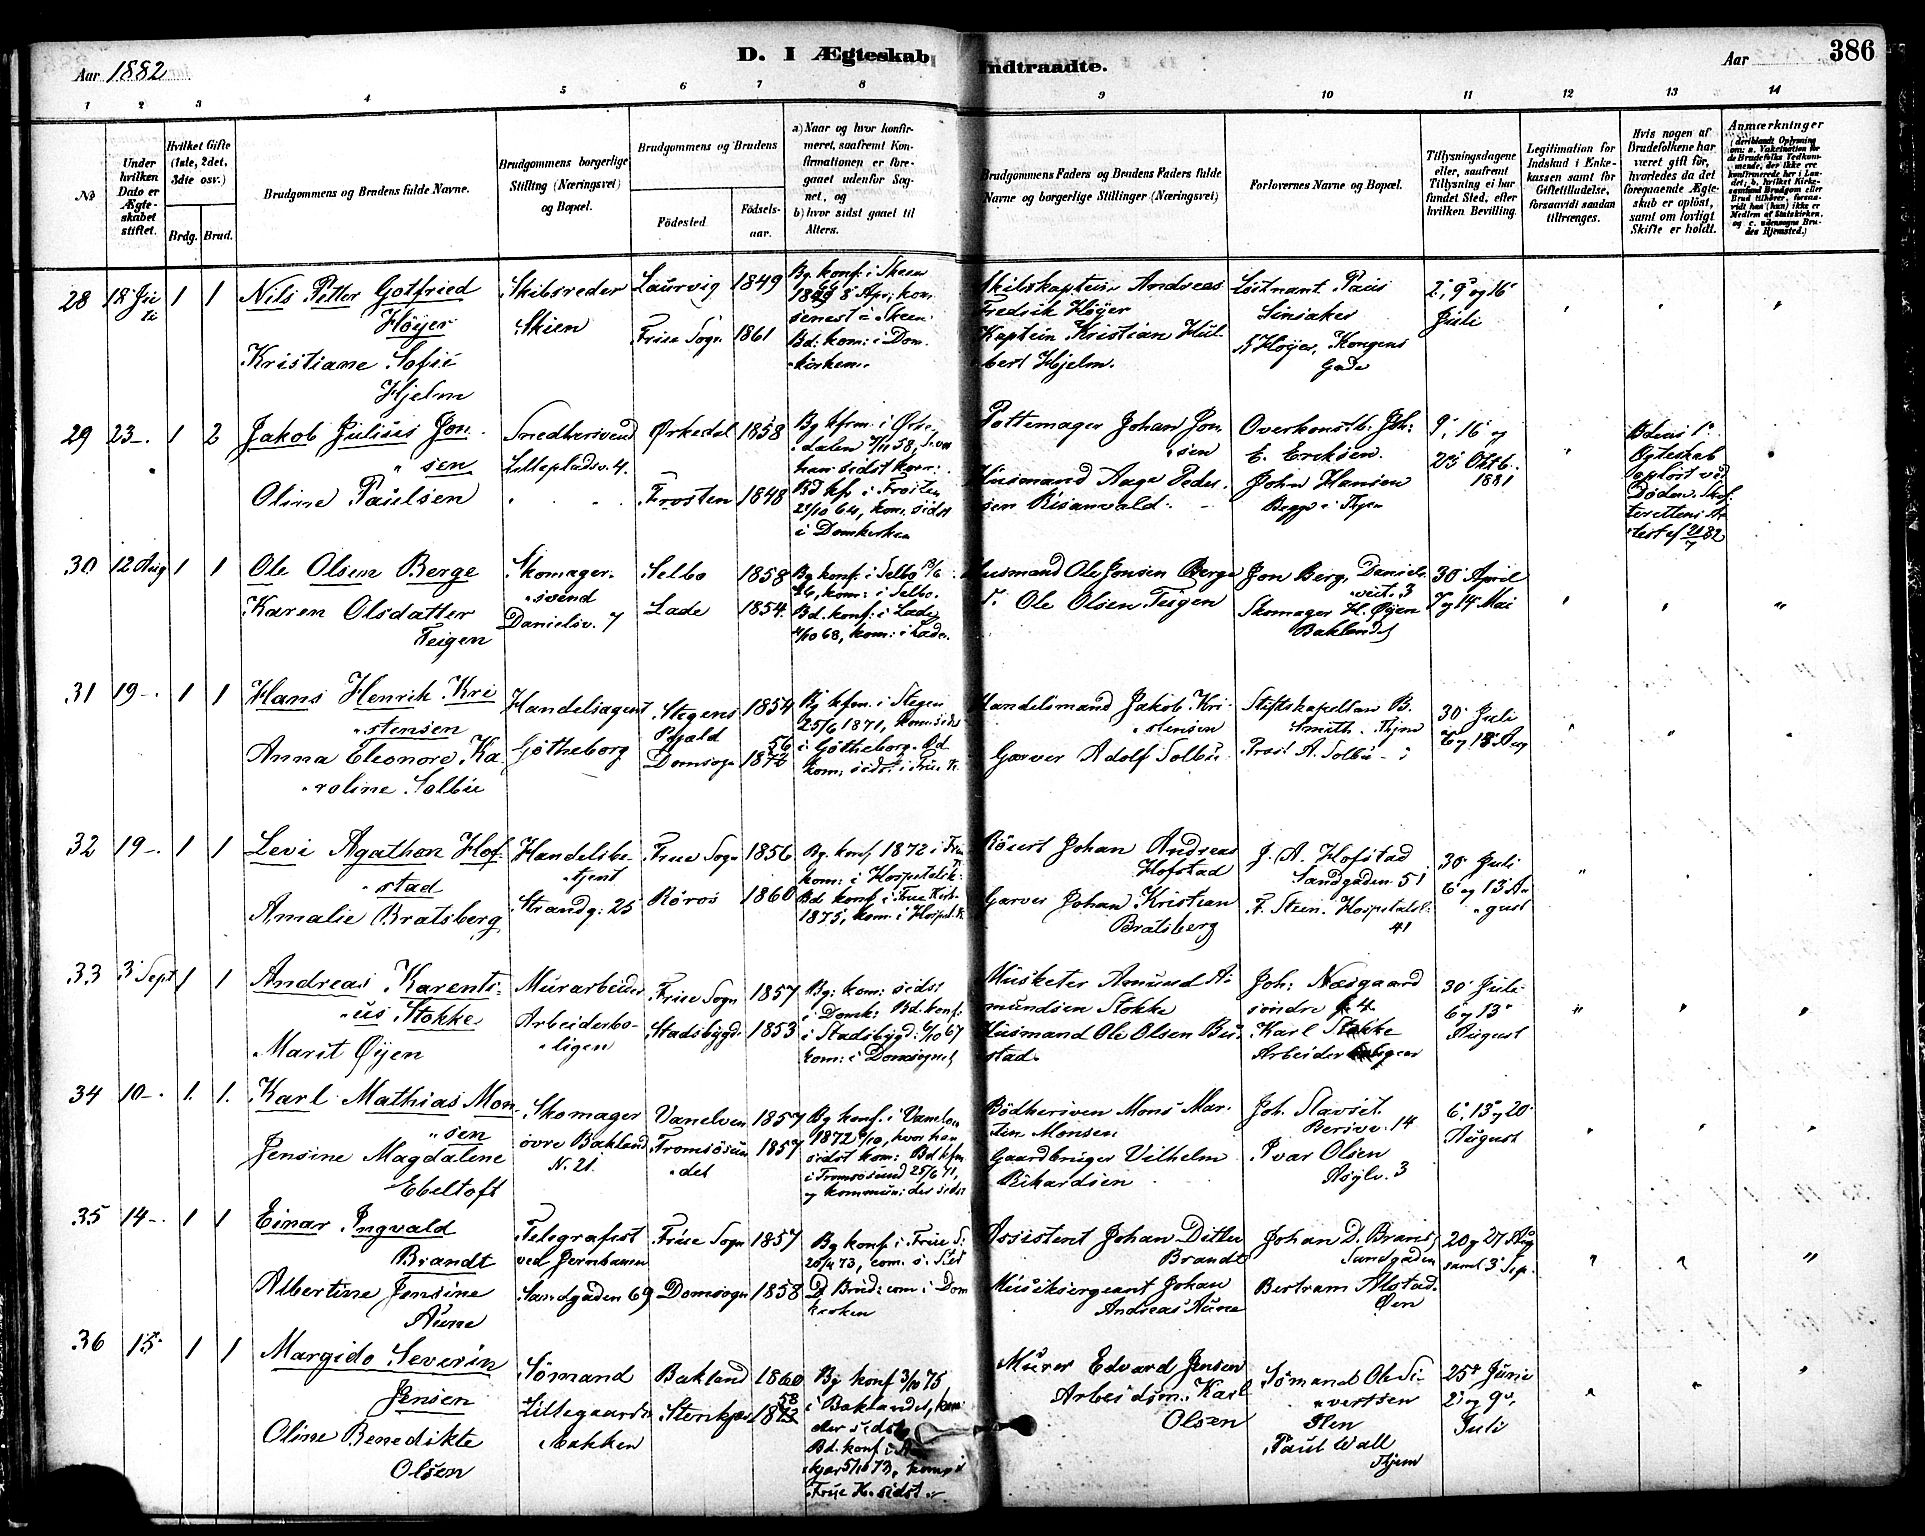 Aar 1882
D. I Ægteskab Indtraadte.
Aar
386
1 2 3 4 5 6 7 8 9 10 11 12 13 14
No
Under hvilken Dato er Ægteskabet stiftet.
Hvilket Gifte (1ste, 2det, 3die osv.)
Brdg. Brud.
Brudgommens og Brudens fulde Navne.
Brudgommens borgerlige Stilling (Næringsvei) og Bopæl.
Brudgommens og Brudens
Fødested
Fødselsaar.
a) Naar og hvor konfirmeret, saafremt Konfirmationen er foregaaet udenfor Sognet, og
b) hvor sidst gaaet til Alters.
Brudgommens Faders og Brudens Faders fulde Navne og borgerlige Stillinger (Næringsvei)
Forlovernes Navne og Bopæl.
Tillysningsdagene eller, saafremt Tillysning ei har fundet Sted, efter hvilken Bevilling.
Legitimation for Indskud i Enkekassen samt for Giftetilladelse, forsaavidt saadan tiltrænges.
Hvis nogen af Brudefolkene har været gift før, hvorledes da det foregaaende Ægteskab er opløst, samt om lovligt Skifte er holdt.
Anmærkninger
28 18 Juli 1 1
Nils Petter Gotfried
Höyer
Kristiane Sofie
Hjelm
Skibsreder
Skien
Laurvig 1849
Frue Sogn 1861
Bg. konf: i Skeen
8 Apr; kom
senest i Skeen
Bd: kom: i Dom
kirken.
Skibskaptein Andreas
Fredrik Höyer
Kaptein Kristian Hul
bert Hjelm.
Löitnant Paus
Sinsaker
K Höyer, Kongens
Gade
2', 9' og 16'
Juli
29 23 1 2
Jakob Julius Jon
sen
Oline Paulsen
Snedkersvend
Lillepladsv. 4.
Ørkedal 1858
Frosten 1848
Bg kfrm: i Ørke
dalen
han sidst kom:
Bd kf i Frosten
25/10 64, kom. sidst
i Domkirken
Pottemager Johan Jon
sen
Husmand Aage Peder
sen Risanvald
Overkonstb. Joh:
E. Eriksen.
John Hansen
Begge i Thjem
9', 16' og
23' Oktb.
1881
Bdens 1ste
Ægteskab
oplöst ved
Döden. Skif
terettens At
test af 21/7 82
30 12 Aug 1 1
Ole Olsen Berge
Karen Olsdatter
Teigen
Skomager
svend
Danielsv. 7
Selbo 1858
Lade 1854
Bg konf: i Selbo
76, kom: i Selbo.
Bd. konf: i Lade
4/10 68, kom: i Lade
Husmand Ole Jonsen Berge
Ole Olsen Teigen
Jon Berg, Daniels
veit. 3
Skomager H. Øyen
Baklandet
30' April
7 og 14' Mai
31 19 1 1
Hans Henrik Kri
stensen
Anna Eleonore Ka
roline Solbu
Handelsagent
Götheborg
Stegens
1854
Domsogn
56
Bg kfm. i Stegen
25/6 1871, kom. sidst
i Götheborg. Bd.
kom: sidst i Frue K.
Handelsmand Jakob Kri
stensen
Garver Adolf Solbu
Stiftskapellan B.
Smith. Thjem
Prost A. Solbu
30' Juli
6' og 13' Aug
32 19 1 1
Levi Agathon Hof
stad
Amalie Bratsberg
Handelsbe
tjent
Strandg: 25
Frue Sogn 1856
Röros 1860
Bg. konf 1872 i Frue
kom: i Hospitalsk:
Bd konf i Frue Kirk
1875, kom. i Hospit. K
Johan Andreas
Hofstad
Garver Johan Kristian
Bratsberg
J. A. Hofstad
Sandgaden 51
F. Steen. Hospitalsl:
41
30' Juli
6' og 13' Au
gust
33 3' Sept 1 1
Andreas Karenti
us Stokke
Marit Øyen
Murarbeider
Arbeiderbo
ligen
Frue Sogn 1857
Stadsbygd 1853
Bg: kom: sidst
i Domk: Bd. konf:
i Stadsbygd: 6/10 67
kom: i Domsognet
Musketer Amund A
mundsen Stokke
Husmand Ole Olsen Bu
stad.
Joh: Næsgaard
söndre g. 4
Karl Stokke
Arbeider
30' Juli
6' og 13'
August
34 10 1. 1.
Karl Mathias Mon
sen
Jensine Magdalene
Ebeltoft
Skomager
övre Bakland
N. 21.
Vanelven 1857
Tromsösun
det 1857
Bg konf. i Vanelven
1872 6/10, hvor han
sidst kom: Bd kfm
i Tromsösund 25/6 71,
og kommun: der sidst
Bödkersven Mons Mar
tin Monsen
Gaardbruger Vilhelm
Rikardsen
Joh. Slavset
14
Ivar Olsen
3
6', 13' og 20'
August
35 14 1 1
Einar Ingvald
Brandt
Albertine Jensine
Aune
Telegrafist
ved Jernbanen
Sandgaden 69
Frue Sogn 1857
Domsogn 1858
Bg konf. i Frue S.
20/4 73, com. s. Sted
D Brud: com: i Dom
kirken
Assistent Johan Ditlev
Brandt
Musiksergeant Johan
Andreas Aune
Johan D. Brandt
Sandgaden
Bertram Alstad
Øen
20 og 27 Aug
samt 3' Sep.
36 15' 1 1
Margido Severin
Jensen
Oline Benedikte
Olsen
Sömand
Lillegaards
bakken
Bakland 1860
Stenkjær
58
Bg konf 3/10 75
i Baklandet, kom
der sidst
Bd. konf i Sten
kjær 5/10 73, kom: i
Frue K. sidst.
Murer Edvard Jensen
Arbeidsm: Karl
Olsen
Sömand Ole Si
vertsen
Ilen
Paul Wall
Thjem
25de Juni
2' og 9',
Juli